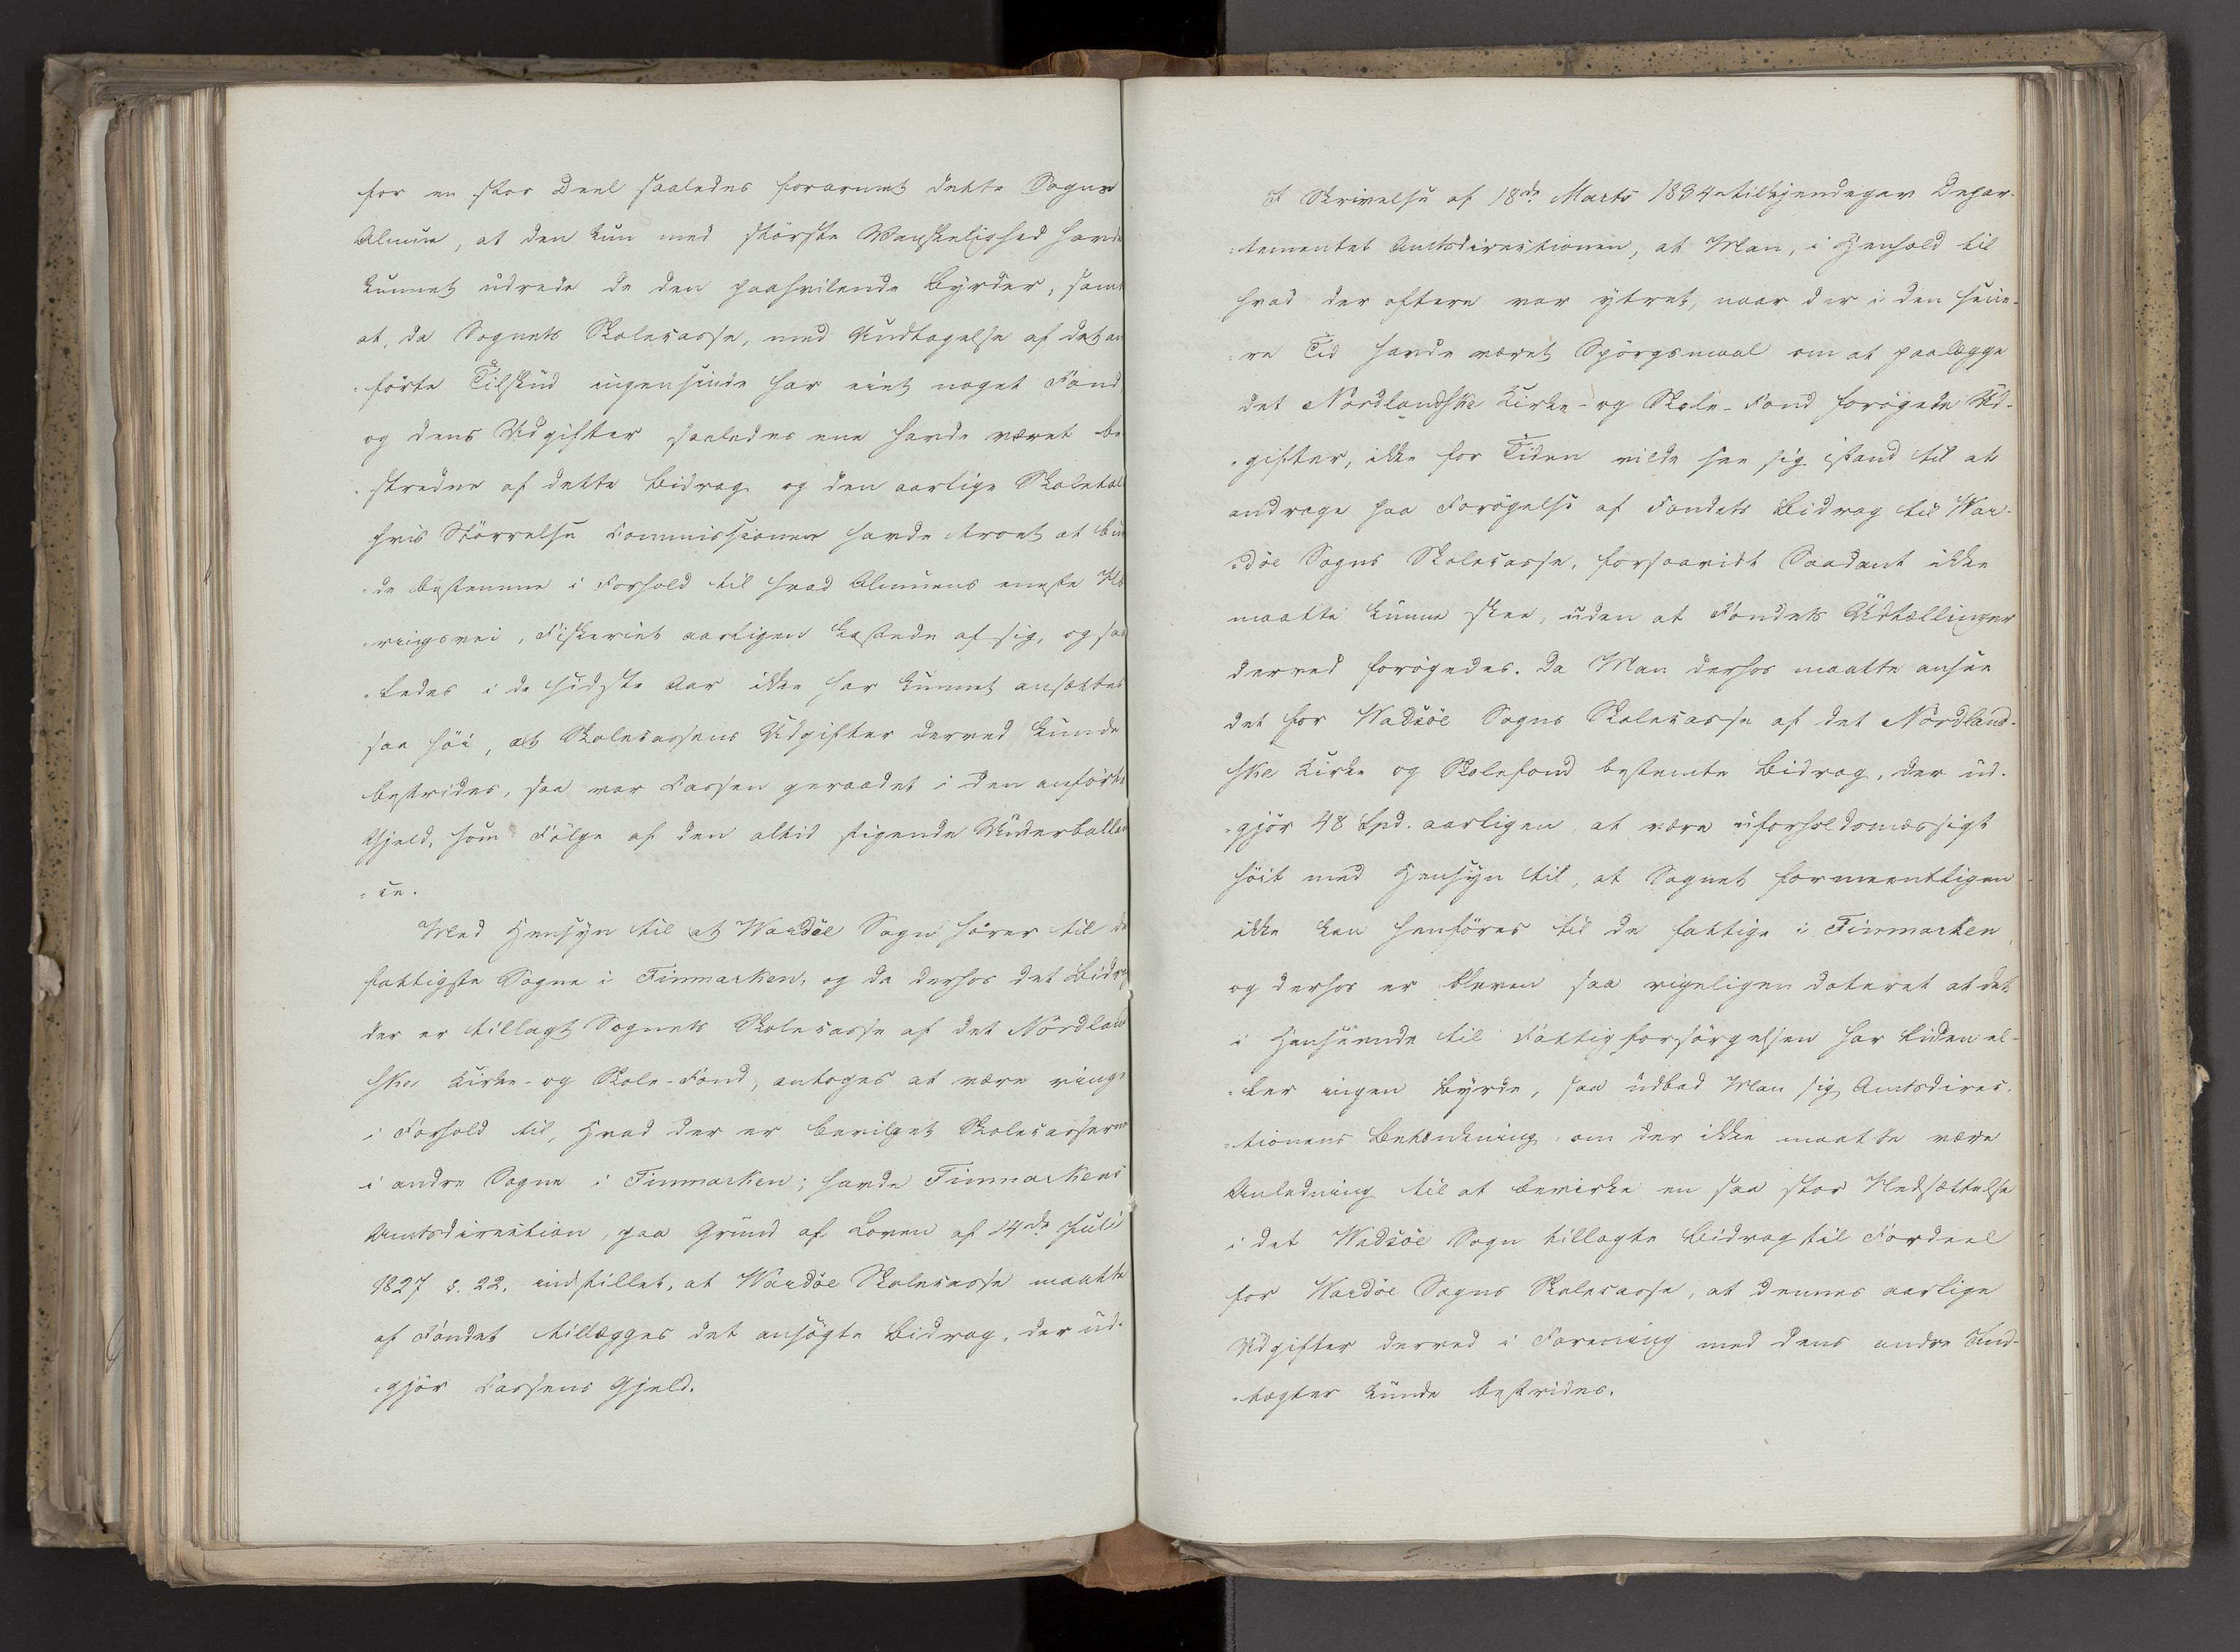 for en stor Deel saaledes forarmet dette Sogns
Almue, at den kun med störste Vanskelighed havde
kunnet udrede de den paahvilende Byrder, samt
at, da Sognets Skolecasse, med Undtagelse af det an
-förte Tilskud ingensinde har eiet noget Fond,
og dens Udgifter saaledes ene havde været be
-stredne af dette Bidrag og den aarlige Skoletold
hvis Störrelse Commissionen havde troet at bur
-de bestemme i Forhold til hvad Almuens eneste Næ
-ringsvei, Fiskeriet aarligen kastede af sig, og saa
-ledes i de sidste Aar ikke har kunnet ansættes
saa höi, at Skolecassens Udgifter derved kunde
bestrides, saa var Cassen geraadet i den anförte
Gjeld, som Fölge af den altid stigende Underballan
-ce.
Med Hensyn til at Wardöe Sogn hörer til de
fattigste Sogne i Finmarken, og da derhos det Bidrag
der er tillagt Sognets Skolecasse af det Nordland
ske Kirke- og Skole-Fond, antoges at være ringe
i Forhold til, hvad der er bevilget Skolecasserne
i andre Sogne i Finmarken; havde Finmarkens
Amtsdirection, paa Grund af Loven af 14de Juli
1827 §. 22. indstillet, at Wardöe Skolecasse maatte
af Fondet tillægges det ansögte Bidrag, der ud-
-gjör Cassens Gjeld.
I Skrivelse af 18de Marts 1834 tilkjendegav Depar-
-tementet Amtsdirectionen, at Man, i Henhold til
hvad der oftere var ytret, naar der i den sene-
-re Tid havde været Spörgsmaal om at paalægge
det Nordlandske Kirke- og Skole-Fond forögede Ud-
-gifter, ikke for Tiden vilde see sig istand til at
andrage paa Forögelse af Fondets Bidrag til War-
-döe Sogns Skolecasse, forsaavidt Saadant ikke
maatte kunne skee, uden at Fondets Udtællinger
derved forögedes. Da Man derhos maatte ansee
det for Wadsöe Sogns Skolecasse af det Nordland-
ske Kirke og Skolefond bestemte Bidrag, der ud-
-gjör 48 Spd. aarligen at være uforholdsmæssigt
höit med Hensyn til, at Sognet formeentligen
ikke kan henföres til de fattige i Finmarken,
og derhos er bleven saa rigeligen doteret at det
i Henseende til Fattigforsörgelsen har liden el-
-ler ingen Byrde, saa udbad Man sig Amtsdirec-
-tionens Betænkning, om der ikke maatte være
Anledning til at bevirke en saa stor Nedsættelse
i det Wadsöe Sogn tillagte Bidrag til Fordeel
for Wardöe Sogns Skolecasse, at dennes aarlige
Udgifter derved i Forening med dens andre Ind-
-tægter kunde bestrides.